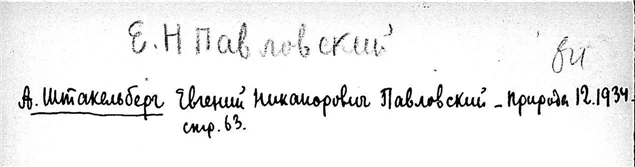 Е.Н Павловский
А. Штакельберг Евгений Никанорович Павловский – Природа 12.1934.
стр. 63.